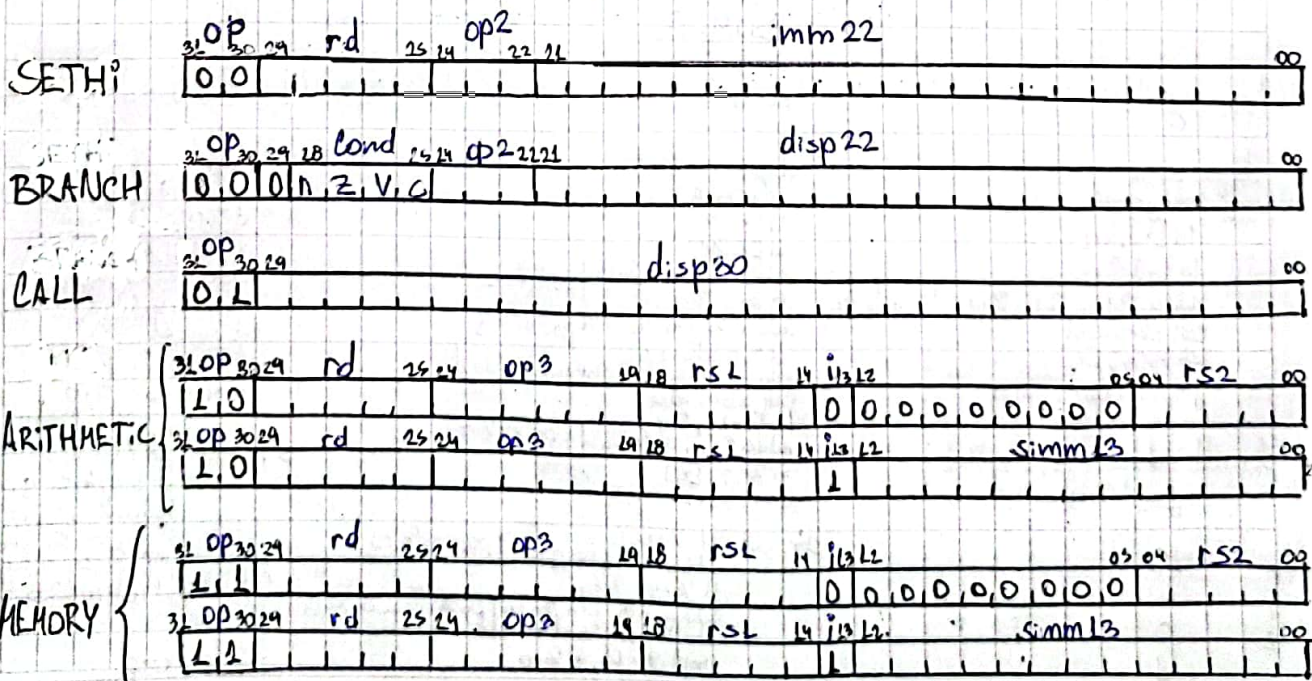 31 OP 30 29 rd 25 24 op2 22 21 imm 22 00
SETHi 0 0
31 OP 30 29 28 Cond 25 24 op2 22 21 disp 22 00
BRANCH 0 0 0 n Z V C
31 OP 30 29 disp30 00
CALL 0 1
31 OP 30 29 rd 25 24 op3 19 18 rs1 14 i 13 12 05 04 rs2 00
1 0 0 0 0 0 0 0 0 0 0
ARiTHMETiC
31 OP 30 29 rd 25 24 op3 19 18 rs1 14 i 13 12 simm 13 00
1 0 1
31 OP 30 29 rd 25 24 op3 19 18 rs1 14 i 13 12 05 04 rs2 00
1 1 0 0 0 0 0 0 0 0 0
MEMORY
31 OP 30 29 rd 25 24 op3 19 18 rs1 14 i 13 12 simm 13 00
1 1 1